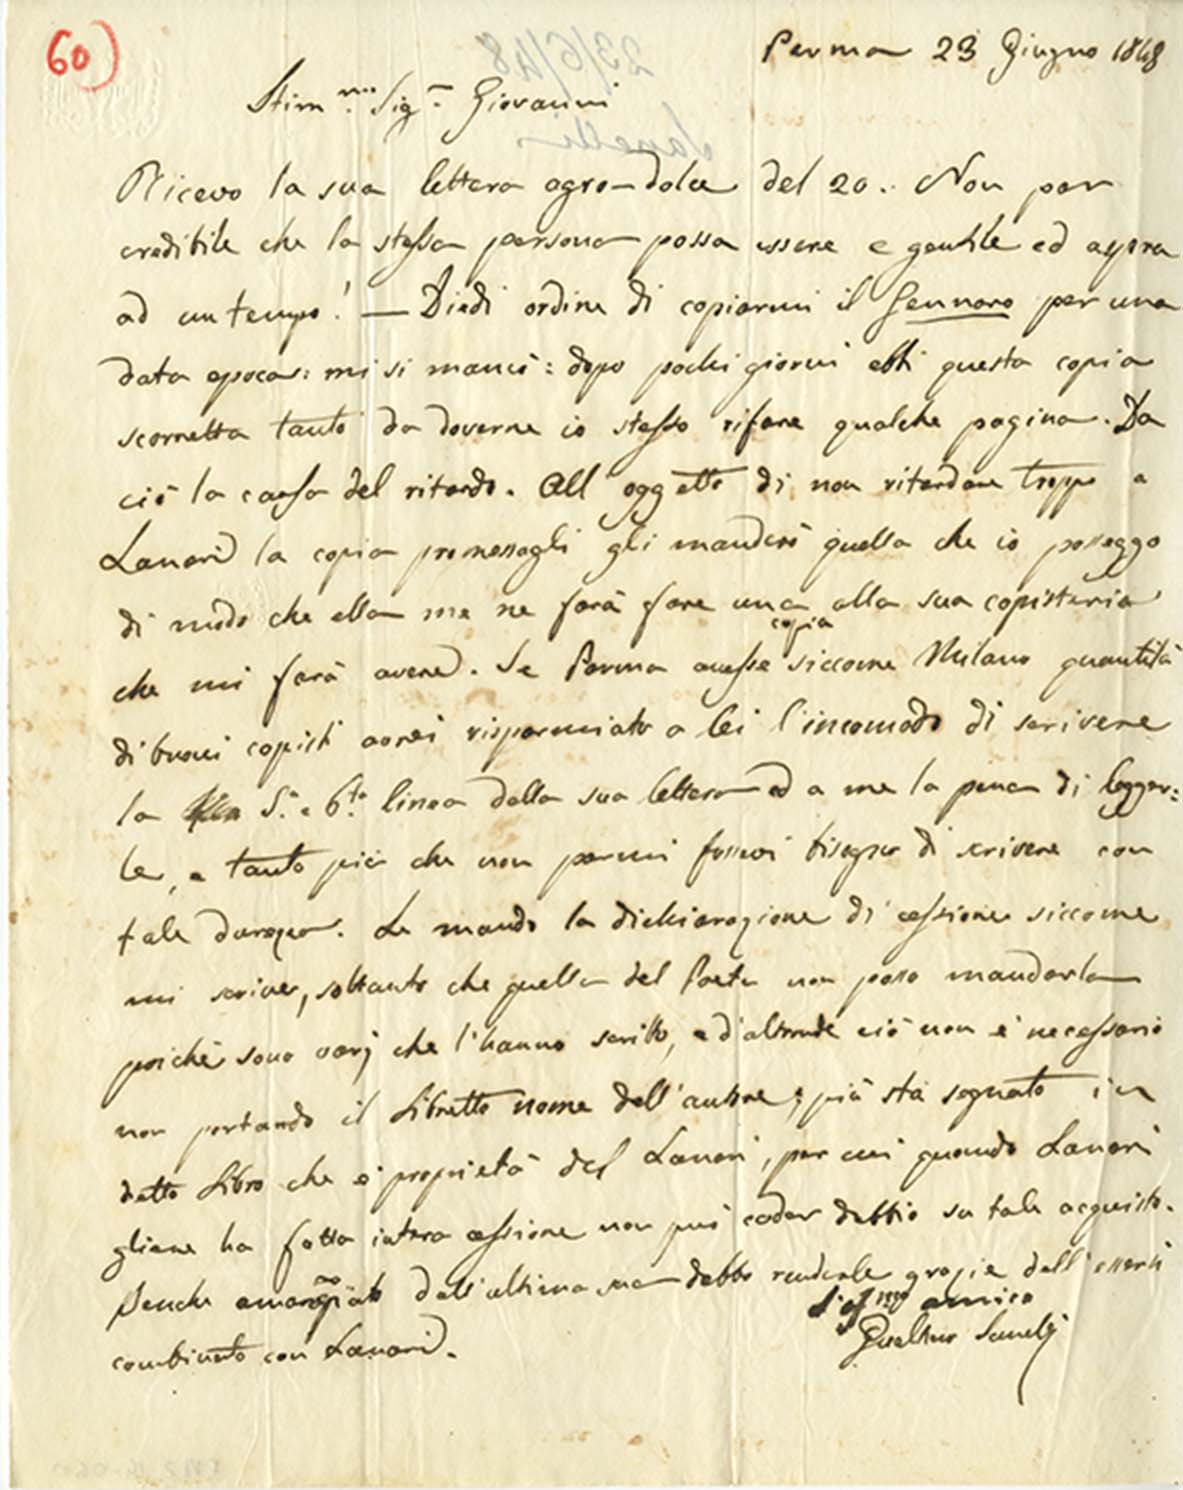 60)
Parma 23 Giugno 1848
Stim.mo Sig.r Giovanni
Ricevo la sua lettera agro-dolce del 20. Non par
credibile che la stessa persona possa essere e gentile ed aspra
ad un tempo! — Diedi ordine di copiarmi il Gennaro per una
data epoca: mi si mancò: dopo pochi giorni ebbi questa copia
scorretta tanto da doverne io stesso rifare qualche pagina. Da
ciò la causa del ritardo. All'oggetto di non ritardare troppo a
Lanari la copia promessagli gli manderò quella che io posseggo
di modo che ella me ne farà fare una copia alla sua copisteria
che mi farà avere. Se Parma avesse siccome Milano quantità
di buoni copisti avrei risparmiato a lei l'incomodo di scrivere
la 5.a e 6.ta linea della sua lettera ed a me la pena di legger=
le, e tanto più che non parmi fossevi bisogno di scrivere con
tale . Le mando la dichiarazione di cessione siccome
mi scrive, soltanto che quella del Poeta non posso mandarla
poiché sono varj che l'hanno scritto, e d'altronde ciò non è necessario
non portando il Libretto nome dell'autore; più sta segnato in
detto Libro che è proprietà del Lanari, per cui quando Lanari
gliene ha fatta intera cessione non può cader dubbio su tale acquisto.
Benché amareggiato dall'ultima sua debbo renderle grazie dell'essersi
combinato con Lanari.
amico
Gualtiero Sanelli
23/6/48
Sanelli